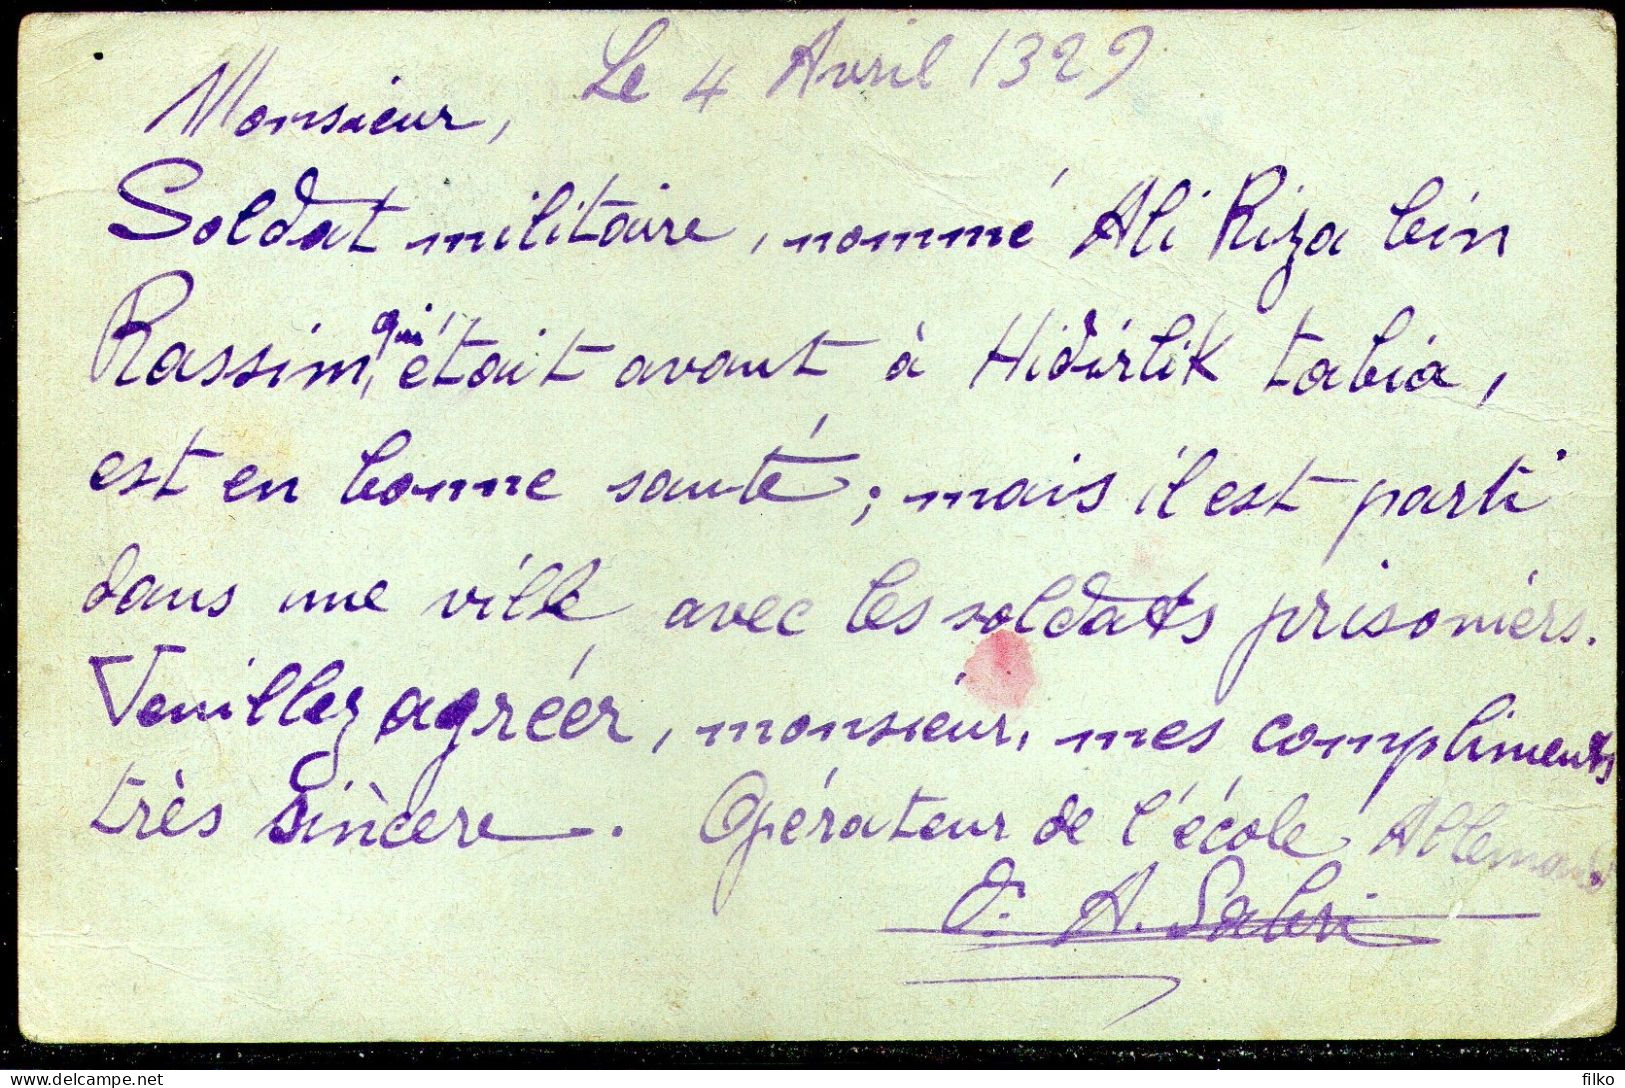 Le 4 Avril 1329
Monsieur,
Soldat militaire, nommé Ali Riza bin
Rassim, qui était avant à Hidirlik tabia,
est en bonne santé; mais il est parti
dans une ville avec les soldats prisoniérs.
Veuillez agréér, monsieur, mes compliments
très sincère. Opérateur de l'école Allemand
A. Sabri
filko